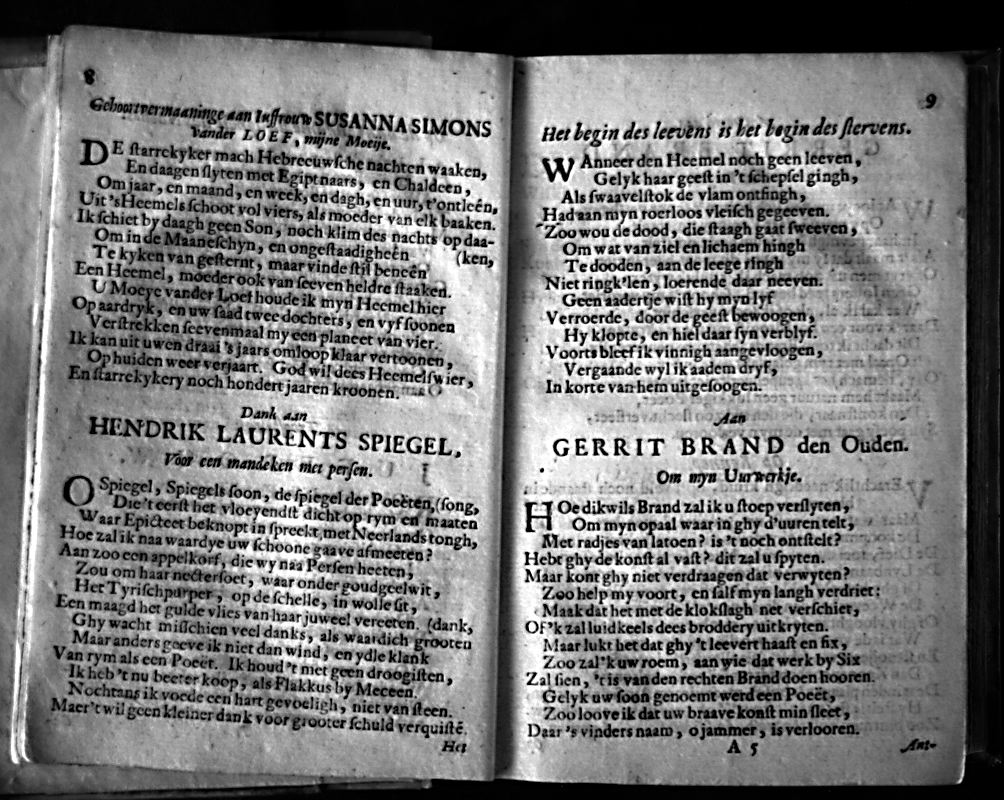 8
Geboortvermaaninge aan Juffrouw SUSANNA SIMONS
vander LOEF, mijne Moeije.
DE starrekyker mach Hebreeuwsche nachten waaken,
En daagen slyten met Egiptnaars, en Chaldeen,
Om jaar, en maand, en week, en dagh, en uur, t'ontleên,
Uit 's Heemels schoot vol viers, als moeder van elk baaken.
Ik schiet by daagh geen Son, noch klim des nachts op daa-
Om in de Maaneschyn, en ongestaadigheên (ken,
Te kyken van gesternt, maar vinde stil beneên
Een Heemel, moeder ook van seeven heldre staaken.
U Moeye vander Loef houde ik myn Heemel hier
Op aardryk, en uw saad twee dochters, en vyf soonen
Verstrekken seevenmaal my een planeet van vier.
Ik kan uit uwen draai 's jaars omloop klaar vertoonen,
Op huiden weer verjaart. God wil dees Heemelswier,
En starrekykery noch hondert jaaren kroonen.
Dank aan
HENDRIK LAURENTS SPIEGEL,
Voor een mandeken met persen.
O Spiegel, Spiegels soon, de spiegel der Poëeten, (song,
Die 't eerst het vloeyendst dicht op rym en maaten
Waar Epicteet beknopt in spreekt, met Neerlands tongh,
Hoe zal ik naa waardye uw schoone gaave afmeeten?
Aan zoo een appelkorf, die wy naa Persen heeten,
Zou om haar nectersoet, waar onder goudgeelwit,
Het Tyrischpurper, op de schelle, in wolle sit,
Een maagd het gulde vlies van haar juweel vereeten. (dank,
Ghy wacht misschien veel danks, als waardich grooten
Maar anders geeve ik niet dan wind, en ydle klank
Van rym als een Poëet. Ik houd 't met geen droogisten,
Ik heb 't nu beeter koop, als Flakkus by Meceen.
Nochtans ik voede een hart gevoeligh, niet van steen.
Maer 't wil geen kleiner dank voor grooter schuld verquisté.
Het
9
Het begin des leevens is het begin des stervens.
WAnneer den Heemel noch geen leeven,
Gelyk haar geest in 't schepsel gingh,
Als swaavelstok de vlam ontfingh,
Had aan myn roerloos vleisch gegeeven.
Zoo wou de dood, die staagh gaat sweeven,
Om wat van ziel en lichaem hingh
Te dooden, aan de leege ringh
Niet ringk'len, loerende daar neeven.
Geen aadertje wist hy myn lyf
Verroerde, door de geest bewoogen,
Hy klopte, en hiel daar syn verblyf.
Voorts bleef ik vinnigh aangevloogen,
Vergaande wyl ik aadem dryf,
In korte van hem uitgesoogen.
Aan
GERRIT BRAND den Ouden.
Om myn Uurwerkje.
HOe dikwils Brand zal ik u stoep verslyten,
Om myn opaal waar in ghy d'uuren telt,
Met radjes van latoen? is 't noch ontstelt?
Hebt ghy de konst al vast? dit zal u spyten.
Maar kont ghy niet verdraagen dat verwyten?
Zoo help my voort, en salf myn langh verdriet:
Maak dat het met de klokslagh net verschiet,
Of 'k zal luidkeels dees broddery uitkryten.
Maar lukt het dat ghy 't leevert haast en fix,
Zoo zal 'k uw roem, aan wie dat werk by Six
Zal sien, 't is van den rechten Brand doen hooren.
Gelyk uw soon genoemt werd een Poëet,
Zoo loove ik dat uw braave konst min sleet,
Daar 's vinders naam, o jammer, is verlooren.
A 5
Ant-